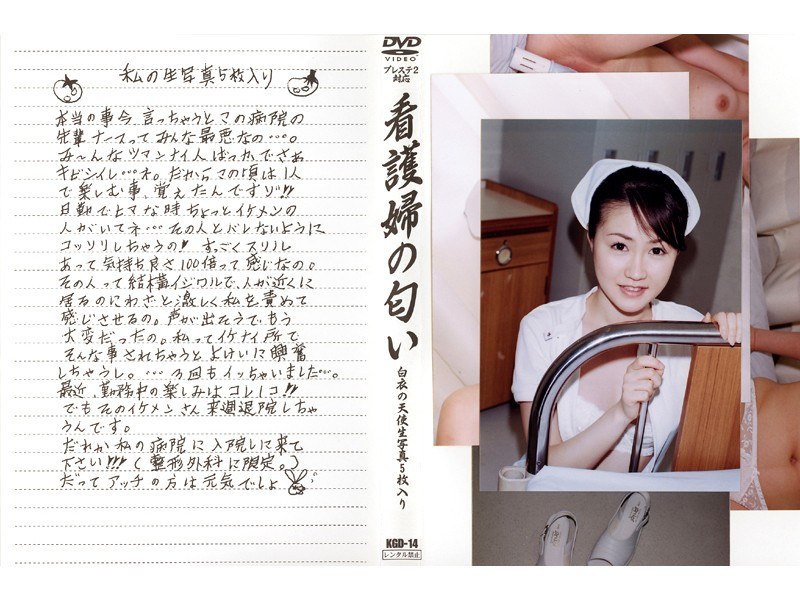 私の生写真5枚入り
本当の事今言っちゃうとこの病院の
先輩ナースってみんな最悪なの…。
み〜んなツマンナイ人ばっかでさぁ
キビシイし…ネ。だからこの頃は1人
で楽しむ事、覚えたんですゾ!!
日勤でヒマな時ちょっとイケメンの
人がいてネ…その人とバレないように
コッソリしちゃうの!! すっごくスリル
あって気持ち良さ100倍って感じなの。
その人って結構イジワルで、人が近くに
居るのにわざと激しく私を責めて
感じさせるの。声が出そうでもう
大変だったの。私ってイケナイ所で
そんな事されちゃうとよけいに興奮
しちゃうし。…3回もイッちゃいました…。
最近、勤務中の楽しみはコレ1コ!!
でもそのイケメンさん来週退院しちゃ
うんです。
だれか私の病院に入院しに来て
下さい!!!(整形外科に限定。)
だってアッチの方は元気でしょ
DVD
VIDEO
プレステ2
対応
看護婦の匂い
白衣の天使生写真5枚入り
KGD-14
レンタル禁止